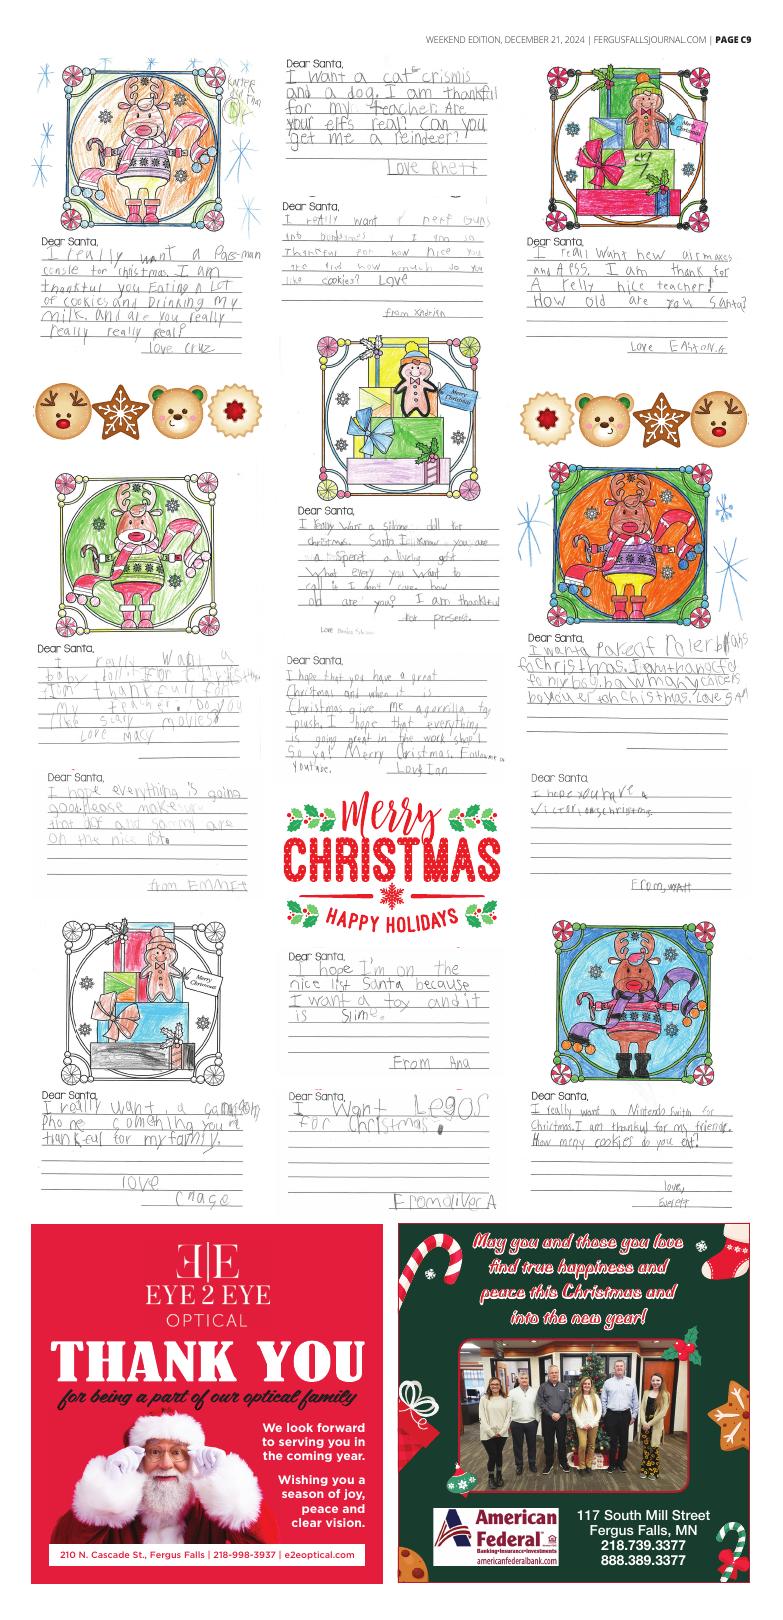 WEEKEND EDITION, DECEMBER 21, 2024 | FERGUSFALLSJOURNAL.COM | PAGE C9
Dear Santa,
I really want a Pacs-man
consle for christmas. I am
thankful you Eating a LOT
of cookies and Drinking My
Milk. and are you really
really really Real?
love cruz
Dear Santa,
I really want a
baby doll.
I'm thankfull for
My teacher. Do you
like scary movies?
Love Macy
Dear Santa,
I hope everything is going
good. please make
that and sammy are
on the nice list.
from EMMET
Merry Christmas
Dear Santa,
I really want a
Phone
thankful for my family.
love
Chase
Dear Santa,
I want a cat crismis
and a dog. I am thankful
for my teacher. Are
your elfs real? Can you
get me a reindeer?
Love Rhett
Dear Santa,
I really want nerf Guns
and I am so
Thankful for how nice you
how much do you
like cookies? Love
from Xadrien
Merry Christmas
Dear Santa,
I really want a doll for
christmas. Santa I know you are
a
What every you want to
I don't care. how
old are you? I am thankful
for presents.
Love
Dear Santa,
I hope that you have a great
Christmas and when it is
Christmas give me a gorrilla tag
plush. I hope that everything
is going great in the work shop!
So ya! Merry Christmas. Follow me on
Youtube. Love Ian
Merry
CHRISTMAS
HAPPY HOLIDAYS
Dear Santa,
I hope I'm on the
nice list Santa because
I want a toy and it
is Slime.
From Ana
Dear Santa,
I want Legos
for Christmas.
From oliver A
Merry Christmas
Dear Santa,
I reall Want new airmaxes
and A PS5. I am thank for
A relly nice teacher!
How old are you Santa?
Love EASTON.G
Dear Santa,
I want a
for Christmas. I am
for my boy. how many
do you Christmas. Love SAM
Dear Santa,
I hope you have a
victorious christmas.
From, wyatt
Dear Santa,
I really want a Nintendo Switch for
Christmas. I am thankful for my friends.
How meny cookies do you eat?
love,
Everett
E|E
EYE 2 EYE
OPTICAL
THANK YOU
for being a part of our optical family
We look forward
to serving you in
the coming year.
Wishing you a
season of joy,
peace and
clear vision.
210 N. Cascade St., Fergus Falls | 218-998-3937 | e2eoptical.com
May you and those you love
find true happiness and
peace this Christmas and
into the new year!
American
Federal
Banking•Insurance•Investments
americanfederalbank.com
117 South Mill Street
Fergus Falls, MN
218.739.3377
888.389.3377